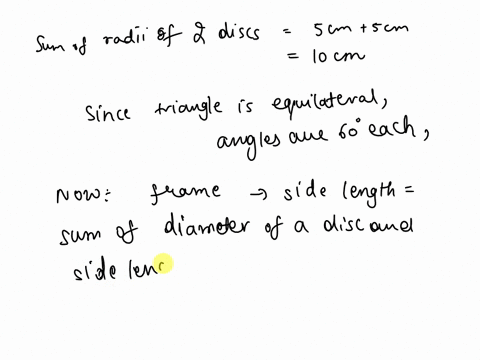 Sum of radii of 2 discs = 5cm + 5cm
= 10 cm
Since triangle is equilateral,
angles are 60° each,
Now: frame → side length =
sum of diameter of a disc and
side len